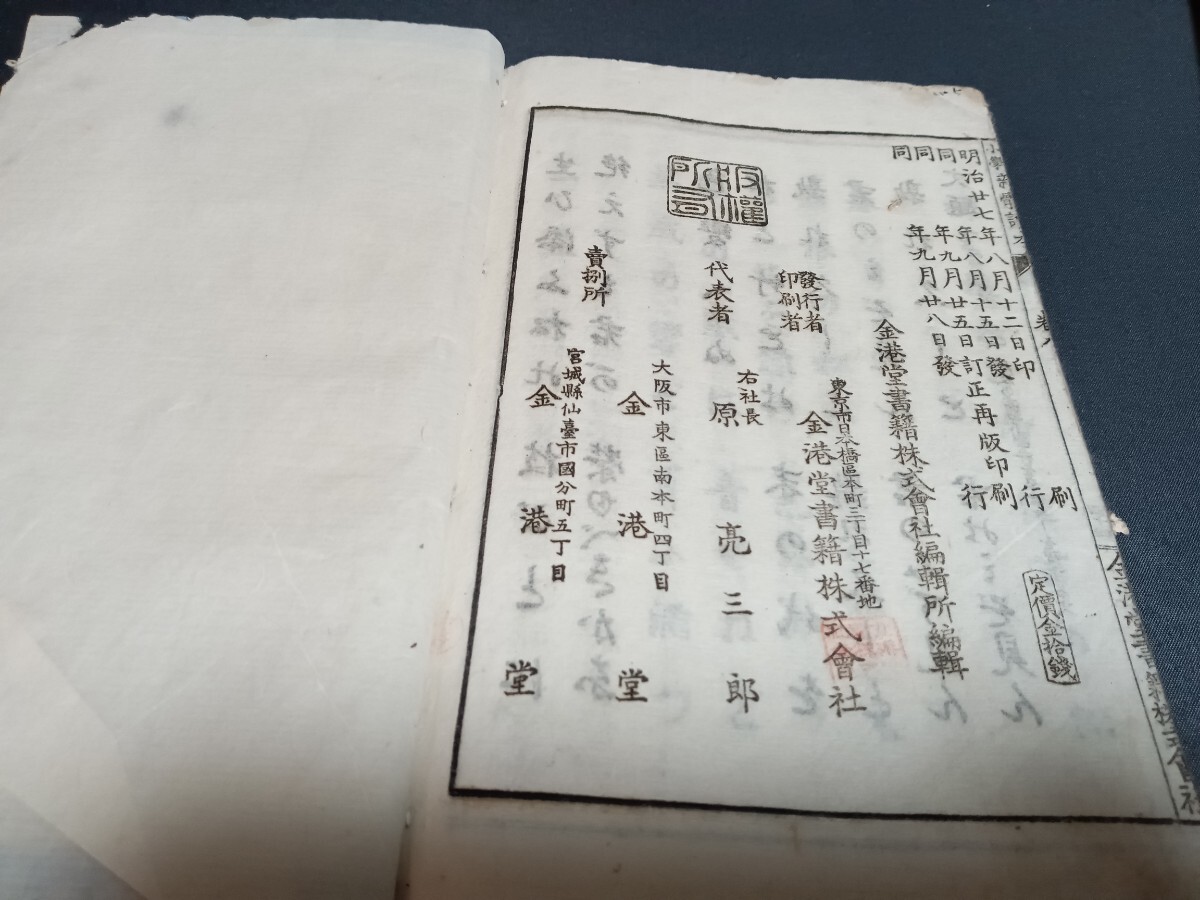 明治廿七年八月十二日印刷
同年八月十五日發行
同年九月廿五日訂正再版印刷
同年九月廿八日發行
定價金拾錢
金港堂書籍株式會社編輯所編輯
東京市日本橋區本町三丁目十七番地
發行者
印刷者
金港堂書籍株式會社
右社長
代表者
原亮三郎
版權所有
大阪市東區南本町四丁目
金港堂
賣捌所
宮城縣仙臺市國分町五丁目
金港堂
金港堂書籍株式會社